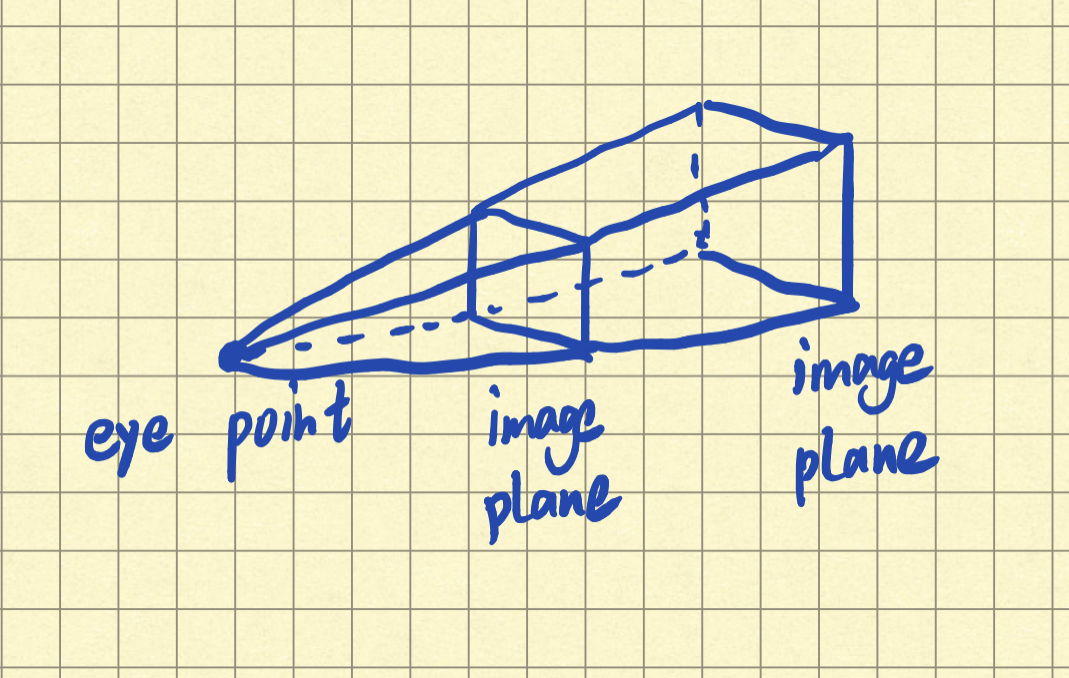 eye point
image
plane
image
plane